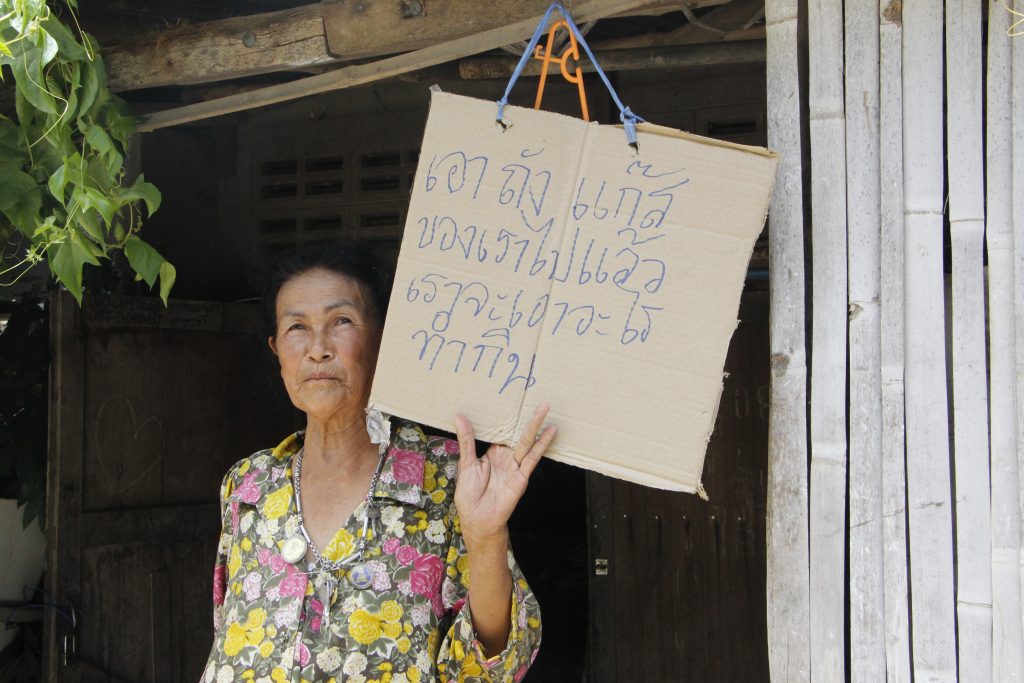 เอา ถัง แก๊ส
ของเราไปแล้ว
เราจะเอาอะไร
ทำกิน